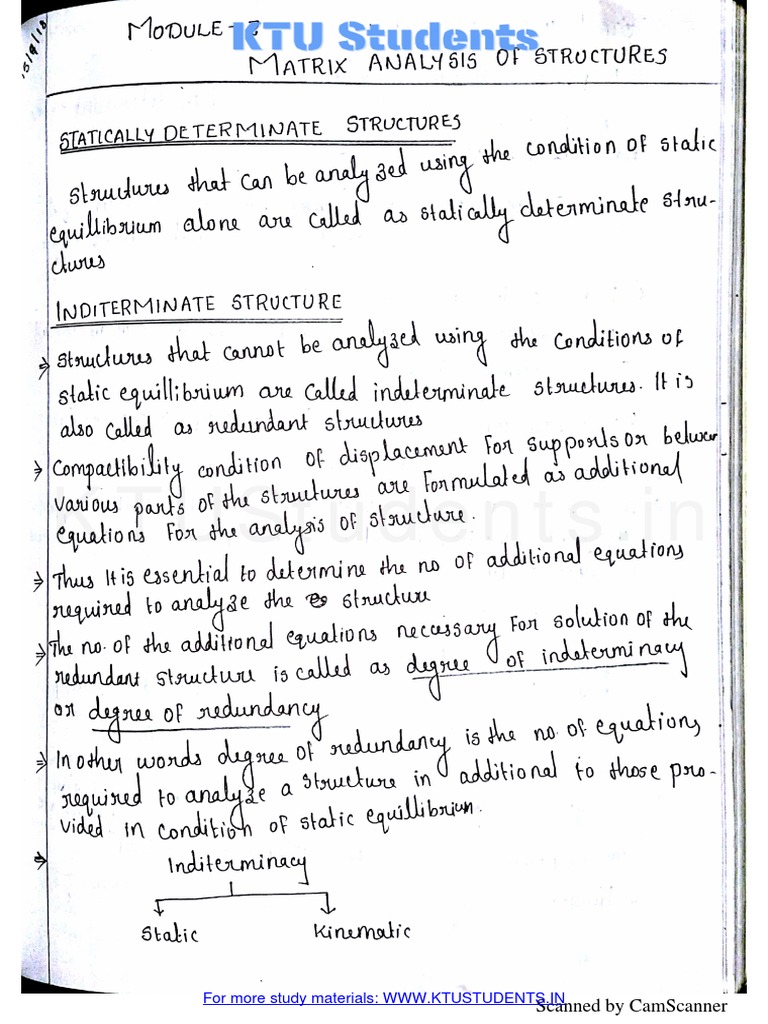 15/9/18
MODULE - 3
KTU Students
MATRIX ANALYSIS OF STRUCTURES
STATICALLY DETERMINATE STRUCTURES
Structures that can be analyzed using the condition of static
equillibrium alone are called as statically determinate stru-
ctures
INDITERMINATE STRUCTURE
⇒ Structures that cannot be analyzed using the conditions of
static equillibrium are called indeterminate structures. It is
also called as redundant structures
⇒ Compactibility condition of displacement for supports or between
various parts of the structures are formulated as additional
equations for the analysis of structure.
KTUStudents.in
⇒ Thus It is essential to determine the no of additional equations
required to analyze the structure
⇒ The no. of the additional equations necessary for solution of the
redundant structure is called as degree of indeterminacy
or degree of redundancy
⇒ In other words degree of redundancy is the no. of equations
required to analyze a structure in additional to those pro-
vided in condition of static equillibrium.
⇒ Inditerminacy
Static Kinematic
For more study materials: WWW.KTUSTUDENTS.IN
Scanned by CamScanner